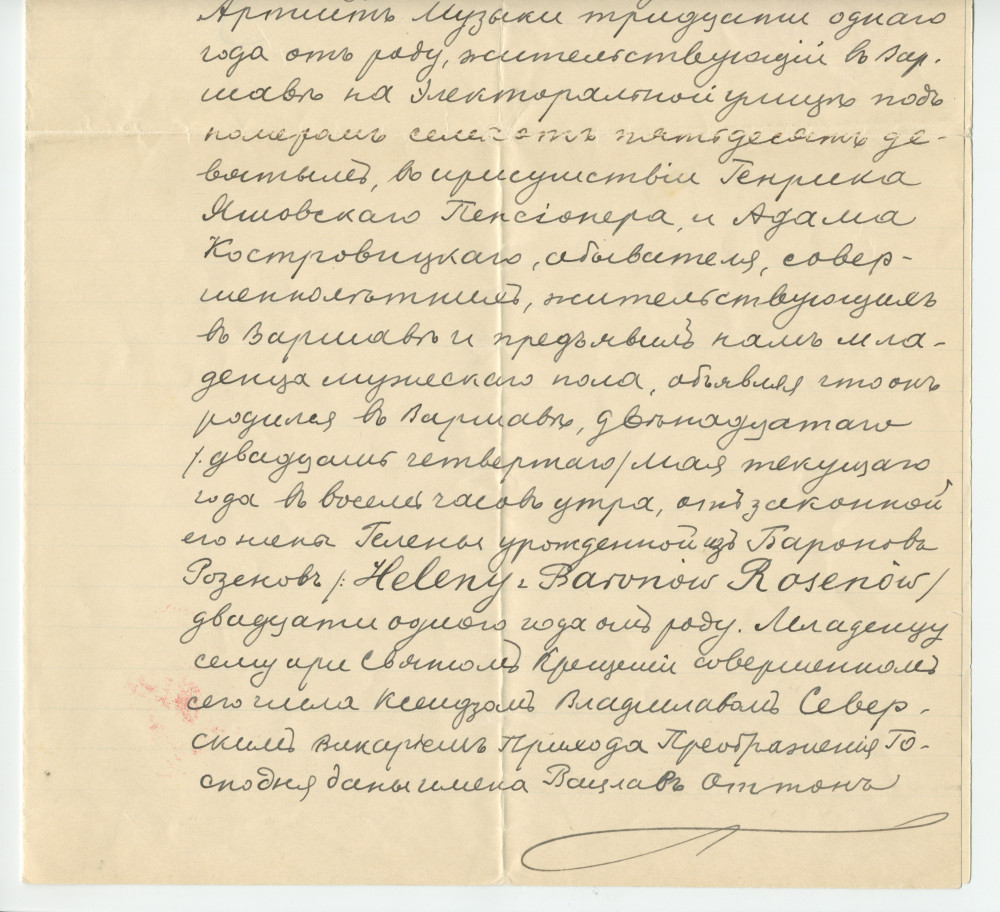 Артистъ Музыки тридцати одного
года отъ роду, жительствующій въ Вар-
шавѣ на Электоральной улицѣ подъ
номеромъ семьсотъ пятьдесятъ де-
вятымъ, въ присутствіи Генрика
Яшовскаго Пенсіонера, и Адама
Костровицкаго, обывателя, совер-
шеннолѣтнихъ, жительствующихъ
въ Варшавѣ и предъявилъ намъ мла-
денца мужескаго пола, объявляя что онъ
родился въ Варшавѣ, двѣнадцатаго
/: двадцать четвертаго / мая текущаго
года въ восемь часовъ утра, отъ законной
его жены Гелены урожденной изъ Бароновъ
Розеновъ /: Heleny z Baronów Rosenów /
двадцати одного года отъ роду. Младенцу
сему при Святомъ Крещеніи совершенномъ
сего числа Ксендзомъ Владиславомъ Север-
скимъ Викаріемъ Прихода Преображенія Го-
сподня даны имена Вацлавъ Оттонъ